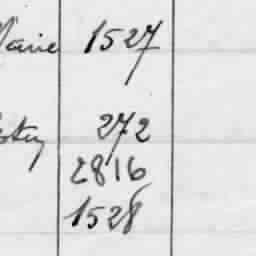 Marie 1527
272
2816
1528